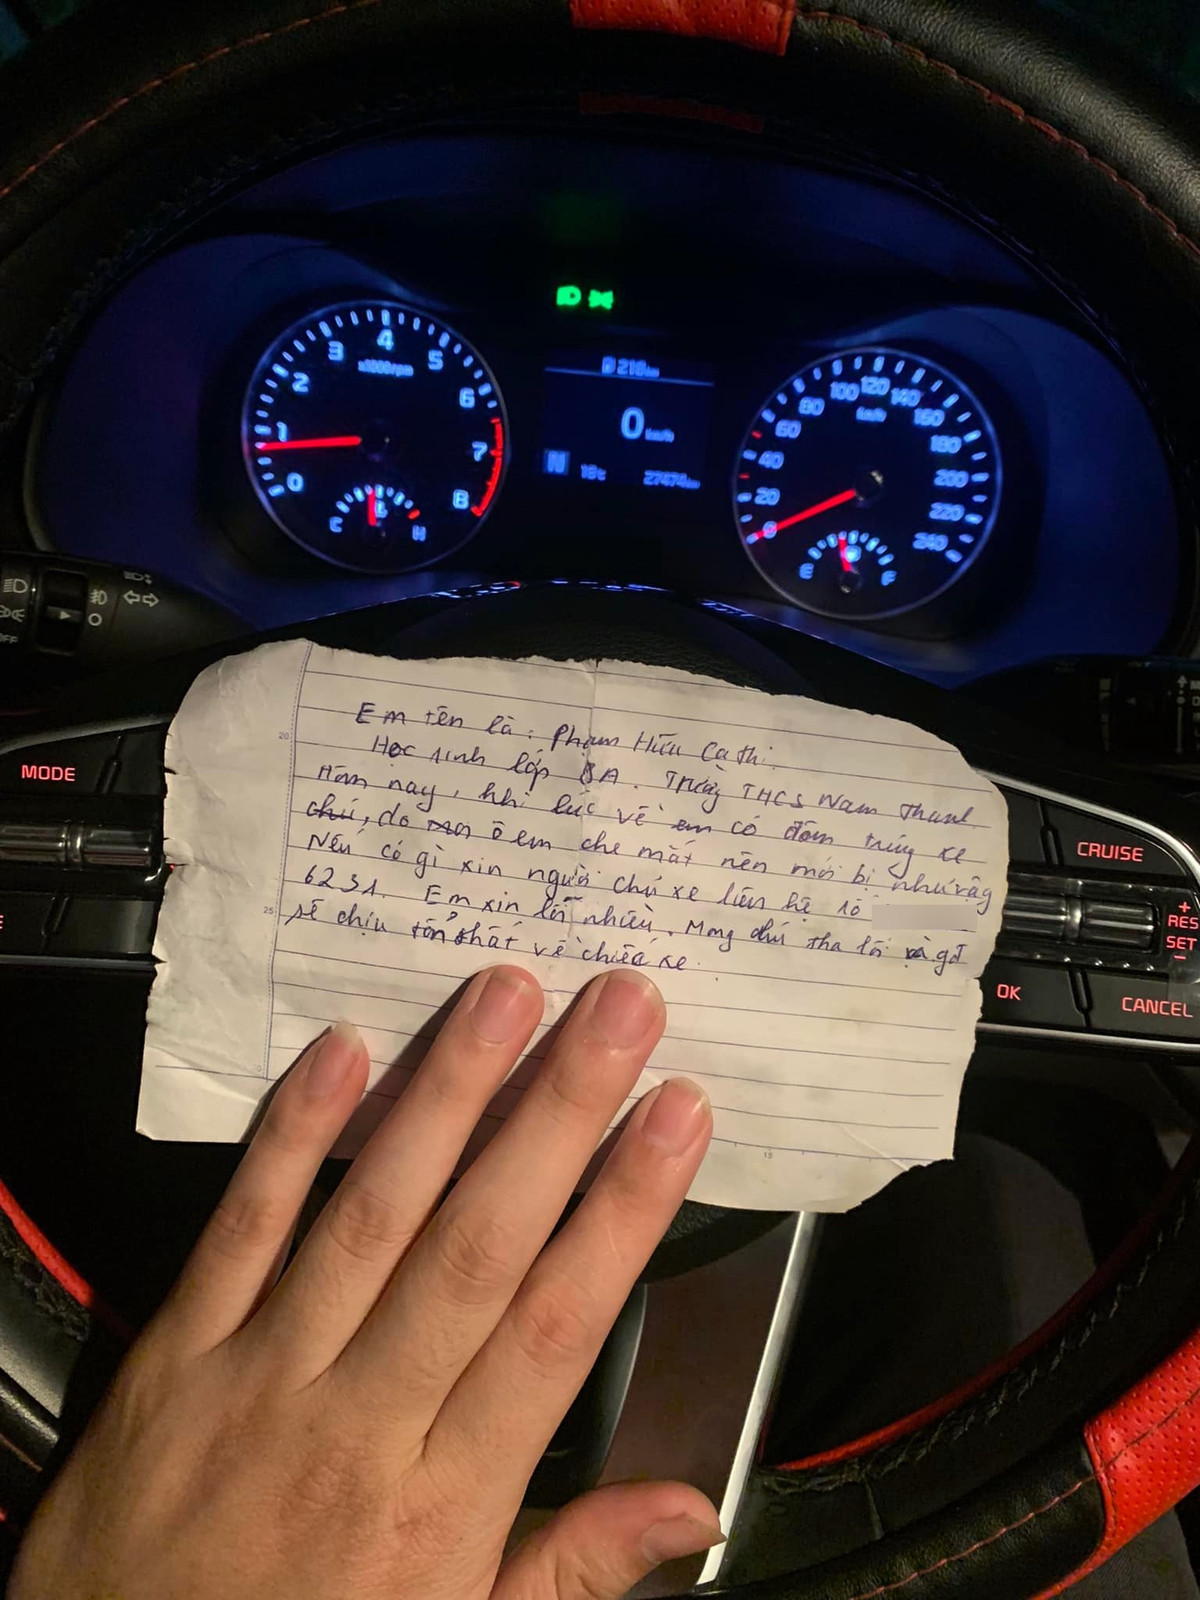 4
3
5
x1000rpm
2
6
1
7
0
8
C
H
210km
0 km/h
N
18°C
27474km
100 120 140
80
160
km/h
60
180
40
200
20
220
0
240
E
F
OFF
MODE
CRUISE
+
RES
SET
-
OK
CANCEL
20
25
15
Em tên là : Phạm Hữu Ca Thi.
Học sinh lớp 8A. Trường THCS Nam Thanh
Hôm nay, khi lúc về em có đâm trúng xe
chú, do ô em che mắt nên mới bị như vậy
Nếu có gì xin người chủ xe liên hệ số
6231. Em xin lỗi nhiều. Mong chú tha lỗi và gđ
sẽ chịu tổn thất về chiếc xe.